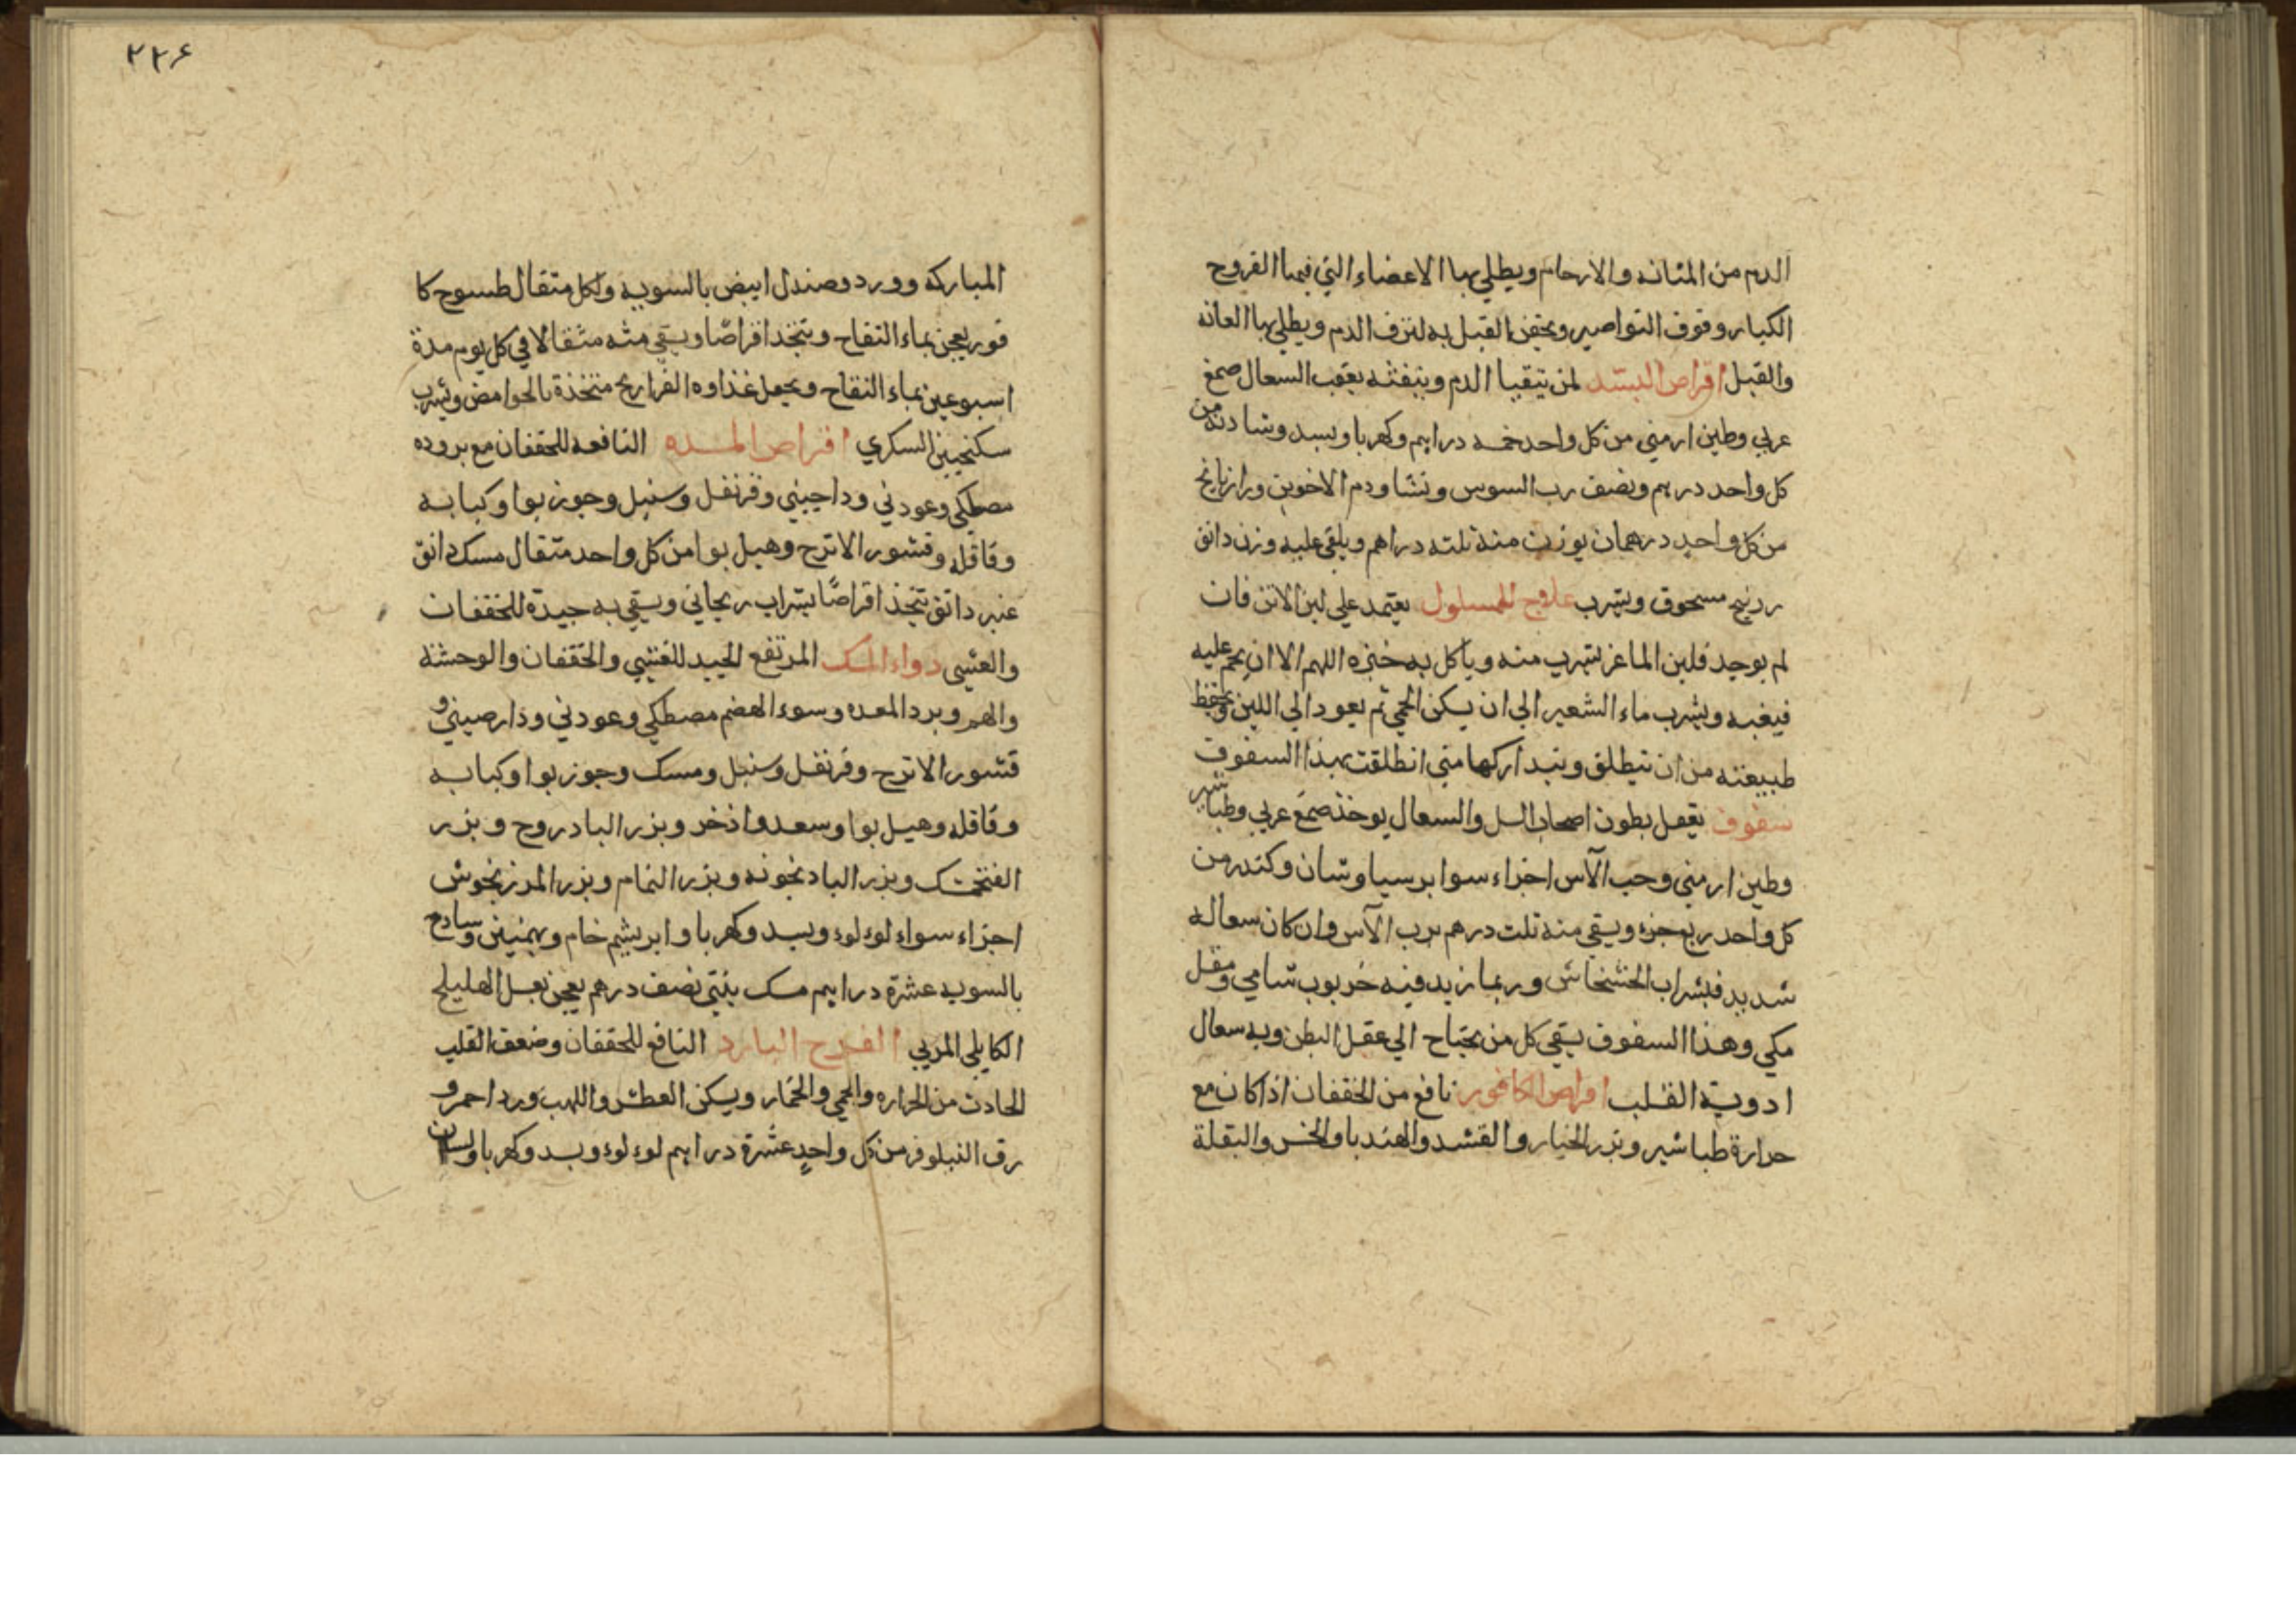 الدم من المثانه والارحام ويطلي بها الاعضاء التي فيها القروح
الكبار وقوف النواصير ويحقن القبل به لنزف الدم ويطلي بها العانه
والقبل اقراص البسد لمن يتقيا الدم وينفثه بعقب السعال صمغ
عربي وطين ارمني من كل واحد خمسه دراهم وكهربا وبسد وشادنه من
كل واحد درهم ونصف رب السوس ونشا ودم الاخوين ورازيانج
من كل واحد درهمان يوزن منه ثلثه دراهم ويلقي عليه وزن دانق
زرنيخ مسحوق ويشرب علاج للمسلول يعتمد علي لبن الاتن فان
لم يوجد فلبن الماعز يشرب منه وياكل به خبزه اللهم الا ان يحم عليه
فيغبه ويشرب ماء الشعير الي ان يسكن الحمي ثم يعود الي اللبن ويحفظ
طبيعته من ان تنطلق ويتداركها متي انطلقت بهذا السفوف
سفوف يعقل بطون اصحاب السل والسعال يوخذ صمغ عربي وطباشير
وطين ارمني وحب الآس اجزاء سوا برسياوشان وكندر من
كل واحد ربع جزء ويسقي منه ثلث درهم برب الآس وان كان سعاله
شديد فبشراب الخشخاش وربما زيد فيه خربوب شامي ومقل
مكي وهذا السفوف يسقي كل من يحتاح الي عقل البطن وبه سعال
ادوية القلب اقراص الكافور نافع من الخفقان اذا كان مع
حرارة طباشير وبزر الخيار والقشد والهندبا والخس والبقلة
٢٢۶
المباركه وورد وصندل ابيض بالسويه ولكل مثقال طسوح كا
فور يعجن بماء التفاح ويتخذ اقراصًا ويسقي منه مثقالا في كل يوم مدة
اسبوعين بماء التفاح ويجعل غذاوه الفراريج متخذة بالحوامض ويشرب
سكنجبين السكري اقراص النافعه للخفقان مع بروده
مصطكي وعود ني وداچيني وقرنفل وسنبل وجوزبوا وكبابه
وقاقله وقشور الاترج وهيل بوا من كل واحد مثقال مسك دانق
عنبر دانق تتخذ اقراصًا بشراب ريحاني ويسقي به جيدة للخفقان
والغشي دواء المسك المرتفع الجيد للغشي والخفقان والوحشة
والهم وبرد المعده وسوء الهضم مصطكي وعود ني ودارصيني و
قشور الاترج وقرنفل وسنبل ومسك وجوزبوا وكبابه
وقاقله وهيل بوا وسعد واذخر وبزر البادروح وبزر
الفنجمشك وبزر البادنجونه وبزر النمام وبزر المرزنجوش
اجزاء سواء لوء لوء وبسد وكهربا وابريشم خام وبهمنين وسادج
بالسويه عشرة دراهم مسك نصف درهم يعجن بعسل الهليلج
الكابلي المربي البارد النافع للخفقان وضعف القلب
الحادث من الحراره والحمي والخمار ويسكن العطش واللهب ورد احمر و
رق النيلوفر من كل واحدٍ عشرة دراهم لوء لوء وبسد وكهربا ولسان